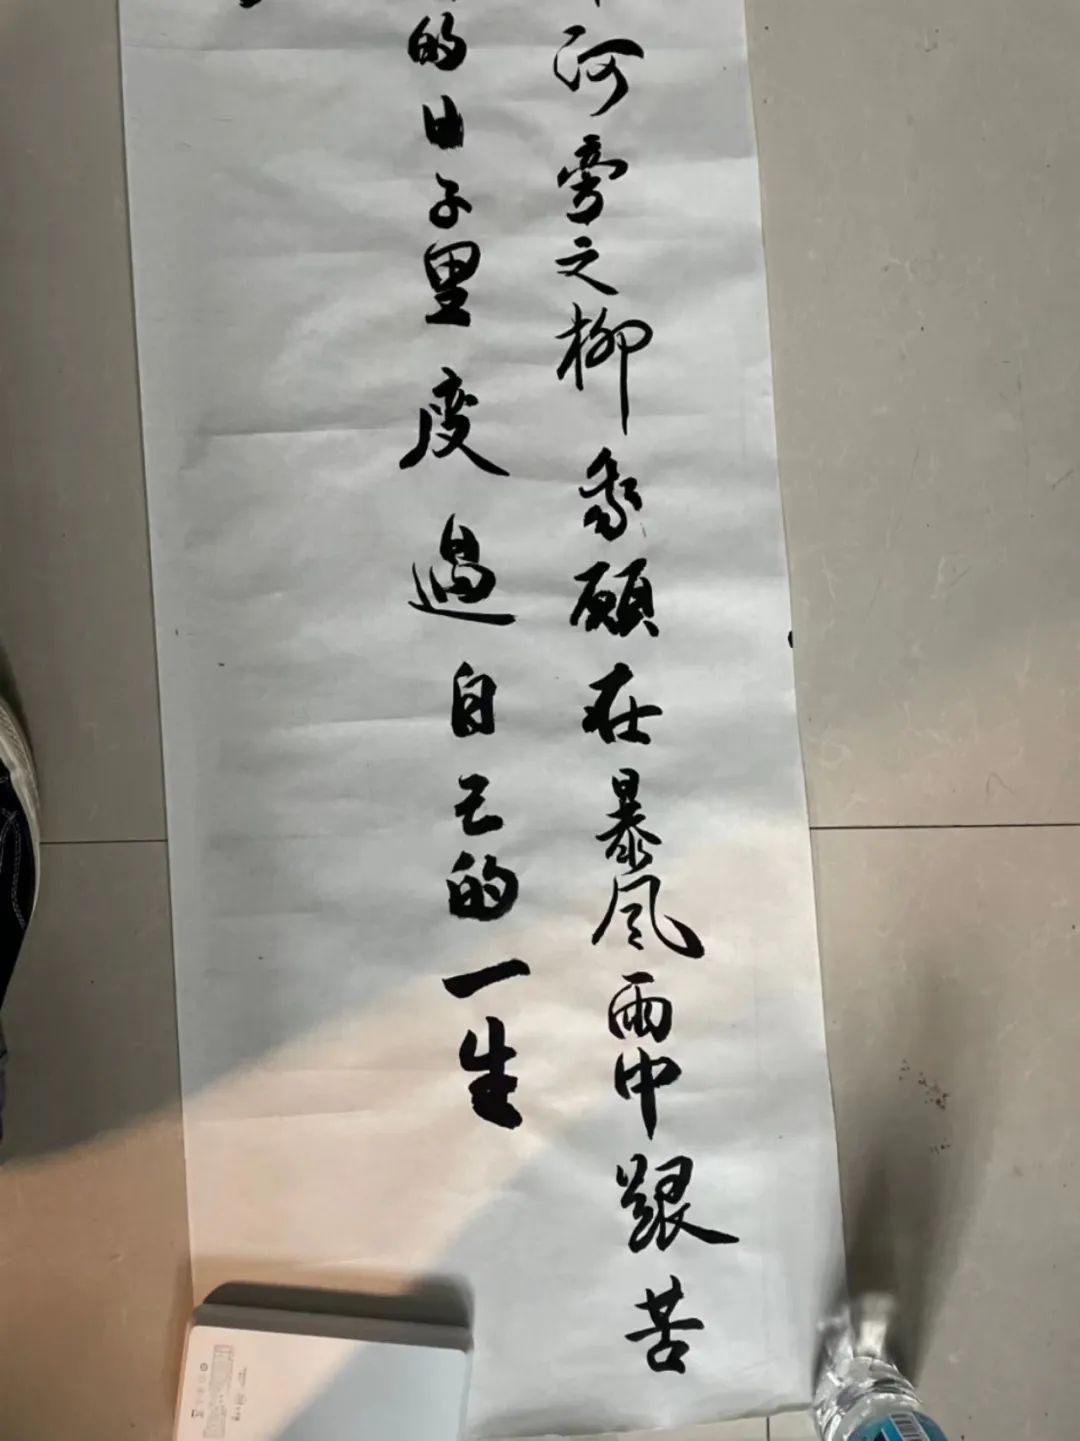 河旁之柳我願在暴风雨中艱苦
的日子里度過自己的一生